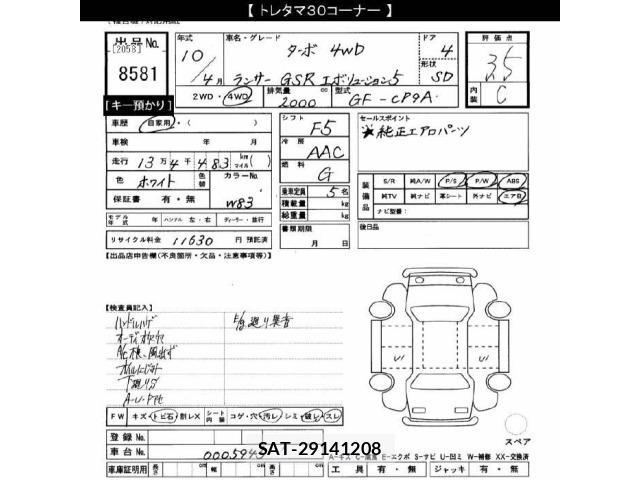 【 トレタマ30コーナー 】
出品No.
[2058]
8581
[キー預かり]
年式
10
4月
車名・グレード
ターボ 4WD
ランサー GSR エボリューション5
ドア
4
形状
SD
評価点
3.5
内装
C
2WD・4WD
排気量
2000
cc
型式
GF-CP9A
車歴
自家用・( )
車検
年 月
走行
13万4千483
km
マイル
( )
色
ホワイト
色替
カラーNo.
W83
保証書
有・無
モデル年式
年
ハンドル
左・右
ディーラー・並行
リサイクル料金
11630
円 預託済
シフト
F5
冷房
AAC
燃料
G
乗車定員
5名
積載量
kg
総重量
kg
書類期限
月 日
セールスポイント
★純正エアロパーツ
装備品
S/R
純A/W
P/S
P/W
ABS
純TV
純ナビ
革シート
外ナビ
エアB
ナビ型番:
後日品
【出品店申告欄(不良箇所・欠品・注意事項等)】
【検査員記入】
ハンドルハゲ
下廻りサビ
FW
キズ・トビ石・割レX
シート内装
コゲ・穴・汚レ・シミ・破レ・スレ
登録No.
車台No.
0005943
車庫証明用
長さ
cm
幅
cm
高さ
cm
SAT-29141208
工具
有・無
ジャッキ
有・無
スペア